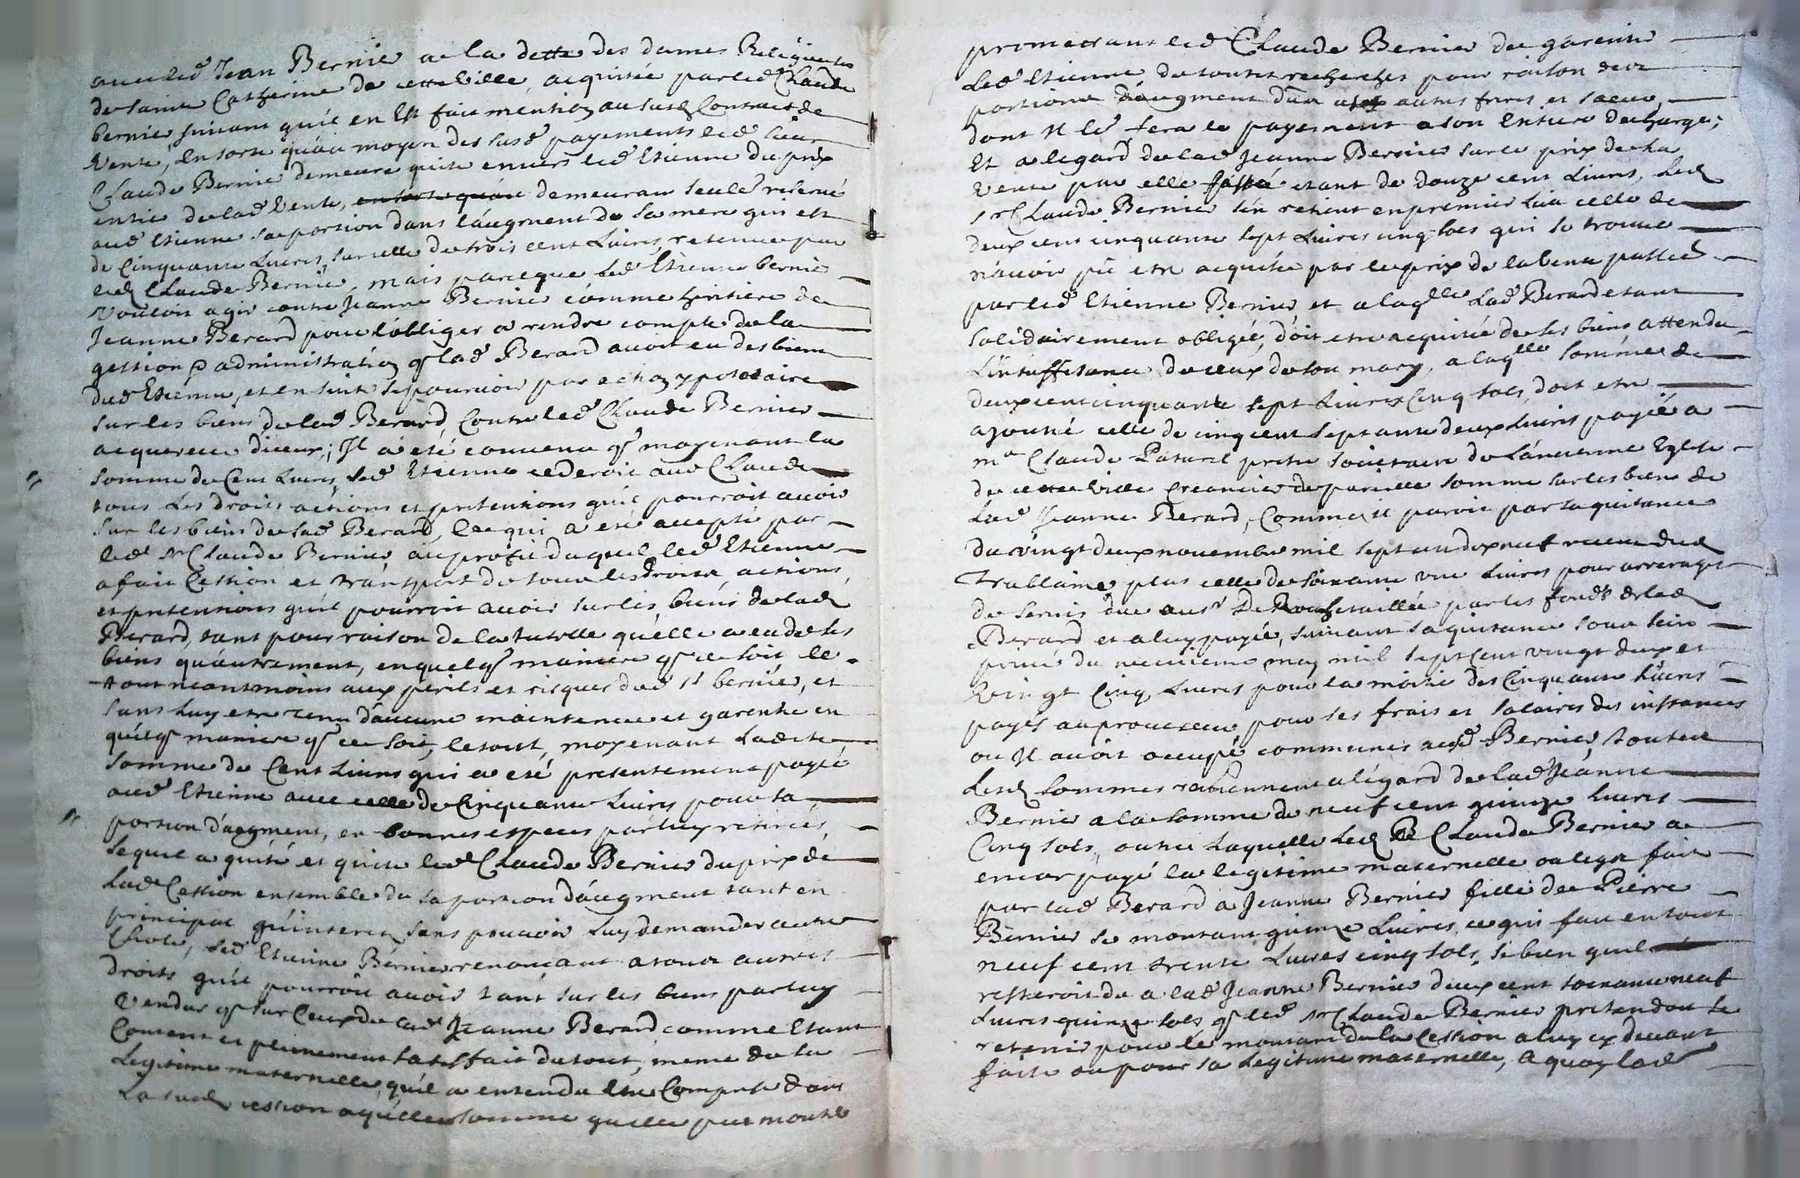 avec led Jean Bernié a la dette des dames Religieuses
de Sainte Catherine de cette Ville, acquitée par led Claude
Bernié suivant qu'il en Est fait mention au susd Contract de
Vente, En sorte qu'au moyen des susd payements led Sieur
Claude Bernié demeure quite envers led Etienne du prix
entier de lad Vente, demeurant seulet reservé
aud Etienne sa portion dans l'augment de sa mere qui est
de Cinquante Livres, sur celle de trois cent Livres retenue par
led Claude Bernié, mais parce que led Etienne bernié
Vouloit agir contre Jeanne Bernié comme heritiere de
Jeanne Berard pour l'obliger a rendre compte de la
gestion & administration q lad Berard avoit eu des biens
dud Etienne, et en suite se pourvoir par action ypotecaire
sur les biens de lad Berard, Contre led Claude Bernié
acquereur diceux; Il a été convenu q moyenant la
somme de Cent Livres, led Etienne cederoit aud Claude
tous les droits actions et pretentions qu'il pourroit avoir
sur les biens de lad Berard, ce qui a été accepté par
led Sr Claude Bernié au profit duquel led Etienne
a fait Cession et transport de tous les droits, actions,
et pretentions qu'il pourroit avoir sur les biens de lad
Berard, tant pour raison de la tutelle qu'elle a eu de ses
biens qu'autrement, en quelq maniere q ce soit le
tout neantmoins aux perils et risques dud Sr bernié, et
sans luy etre tenu d'aucune maintenue et garentie en
quelq maniere q ce soit, le tout, moyenant ladite
somme de Cent Livres qui a été presentement payée
aud Etienne avec celle de Cinquante Livres pour sa
portion d'augment, en bonnes especes par luy retirées,
lequel a quité et quite led Claude Bernié du prix de
lad Cession ensemble de sa portion d'augment tant en
principal qu'interet, sans pouvoir luy demander autre
Chose, led Etienne Bernié renonçant a tous autres
droits qu'il pourroit avoir tant sur les biens par luy
Vendus q sur Ceux de lad Jeanne Berard comme Etant
Content et pleinement satisfait du tout, meme de la
Legitime maternelle, qu'il a entendu Etre Comprise dans
La susd cession a quelle somme quelle put monter
promettant led Claude Bernié de garentir
Led Etienne de toutes recherches pour raison de ce
portions d'augment dûe a autres freres et sœurs
dont Il led fera le payement a son Entiere decharge;
Et a l'egard de lad Jeanne Bernié sur le prix de la
Vente par elle passé etant de douze cent Livres, led
Sr Claude Bernié s'en retient en premier lieu celle de
deux cent cinquante sept Livres cinq sols qui se trouve
n'avoir pû etre acquitée par le prix de la vente passée
par led Etienne Bernié et a laqlle Lad Berard etant
solidairement obligée, doit etre acquitée de ses biens attendu
L'insuffisance de ceux de son mary, a laqlle somme de
deux cent cinquante sept Livres Cinq sols, doit etre
ajouté celle de cinq cent septante deux Livres payée a
Mre Claude Paturel pretre societaire de l'Ancienne Eglise
de cette Ville Creancier de pareille somme sur les biens de
Lad Jeanne Berard, Comme Il paroit par sa quitance
du vingt deux novembre mil sept cent dix neuf receue dud
plus celle de soixante une Livres pour arrerages
de Servis due au Sr De Rochetaillée par les fonds de lad
Berard et a luy payée, suivant sa quitance sous sein
privé du neuvieme may mil sept cent vingt deux et
Vingt Cinq Livres pour la moitié des Cinquante Livres
payés au procureur pour ses frais et salaires des instances
ou Il avoit occupé communes aud Bernié, toutes
Lesd sommes revienent a légard de lad Jeanne
Bernié a la somme de neuf cent quinze Livres
Cinq sols, outre Laquelle Led Claude Bernié a
encor payé la legitime maternelle ou legat fait
par lad Berard a Jeanne Bernié fille de Pierre
Bernié se montant quinze Livres, ce qui fait en tout
neuf cent trente Livres cinq sols, si bien quil
resteroit du a lad Jeanne Bernié deux cent soixante neuf
Livres quinze sols q led Sr Claude Bernié pretendoit se
retenir pour le montant de la Cession a luy cy devant
faite ou pour sa legitime maternelle, A quoy lad